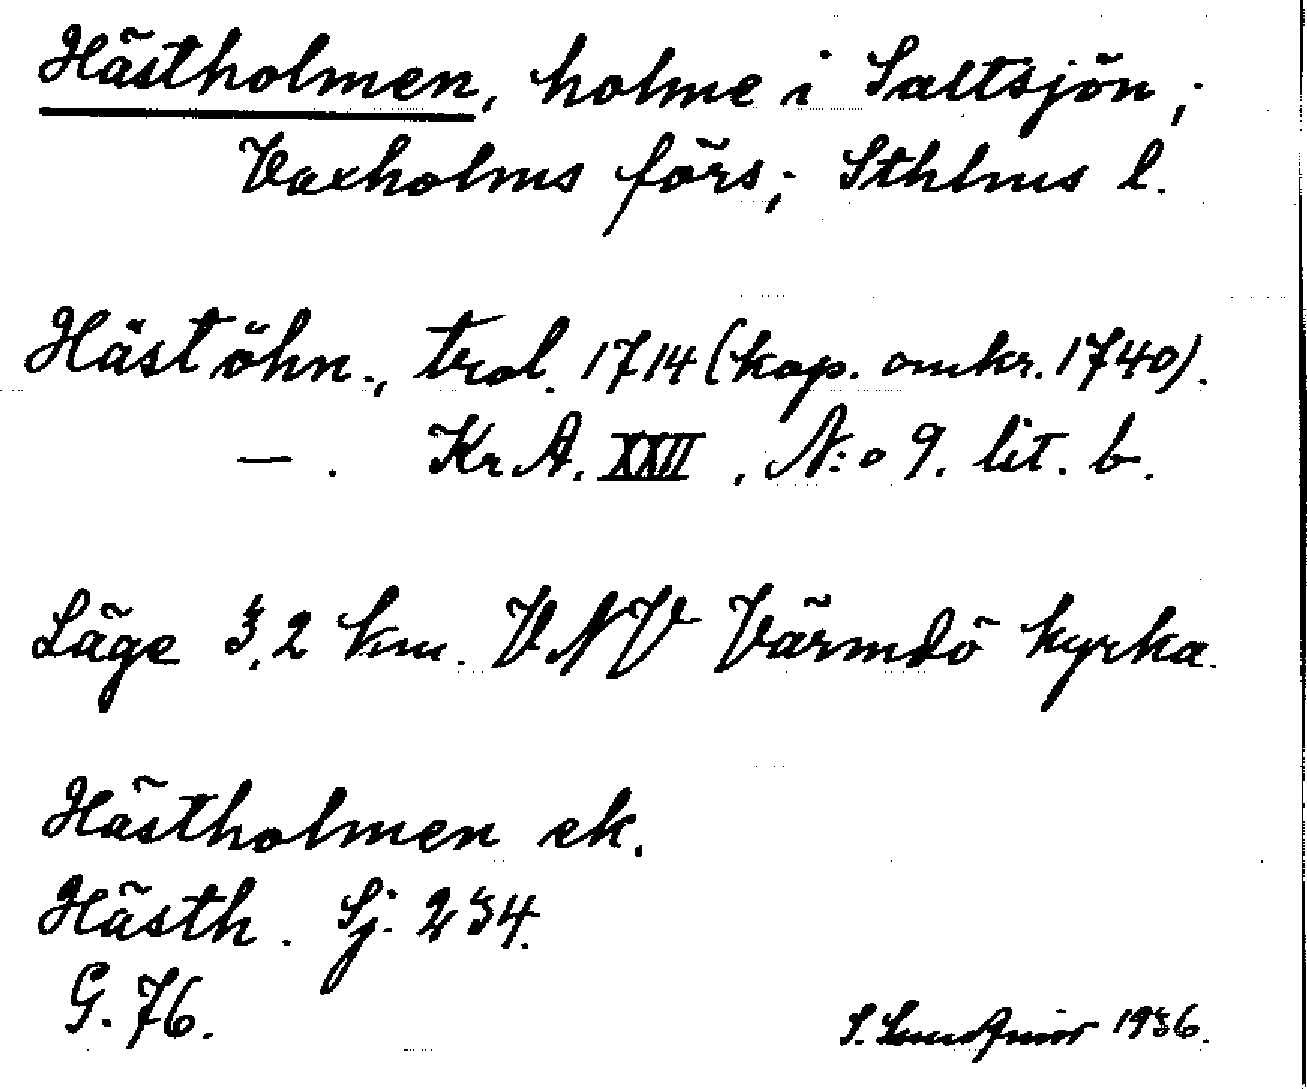 Hästholmen, holme i Saltsjön;
Vaxholms förs; Sthlms l.
Hästöhn., trol. 1714 (kop. omkr. 1740).
—. Kr A. XXII, N:o 9. lit. b.
Läge 3,2 km. VNV Värmdö kyrka.
Hästholmen ek.
Hästh. Sj. 234.
G. 76.
S. 1936.